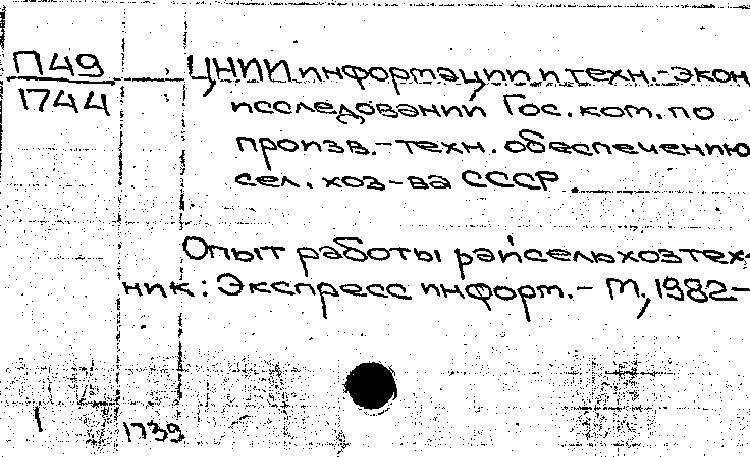 П49
1744
ЦНИИ информации и техн.-экон
исследований Гос. ком. по
произв.-техн. обеспечению
сел. хоз-ва СССР.
Опыт работы райсельхозтех-
ник: Экспресс информ.- М, 1982-
1
1739